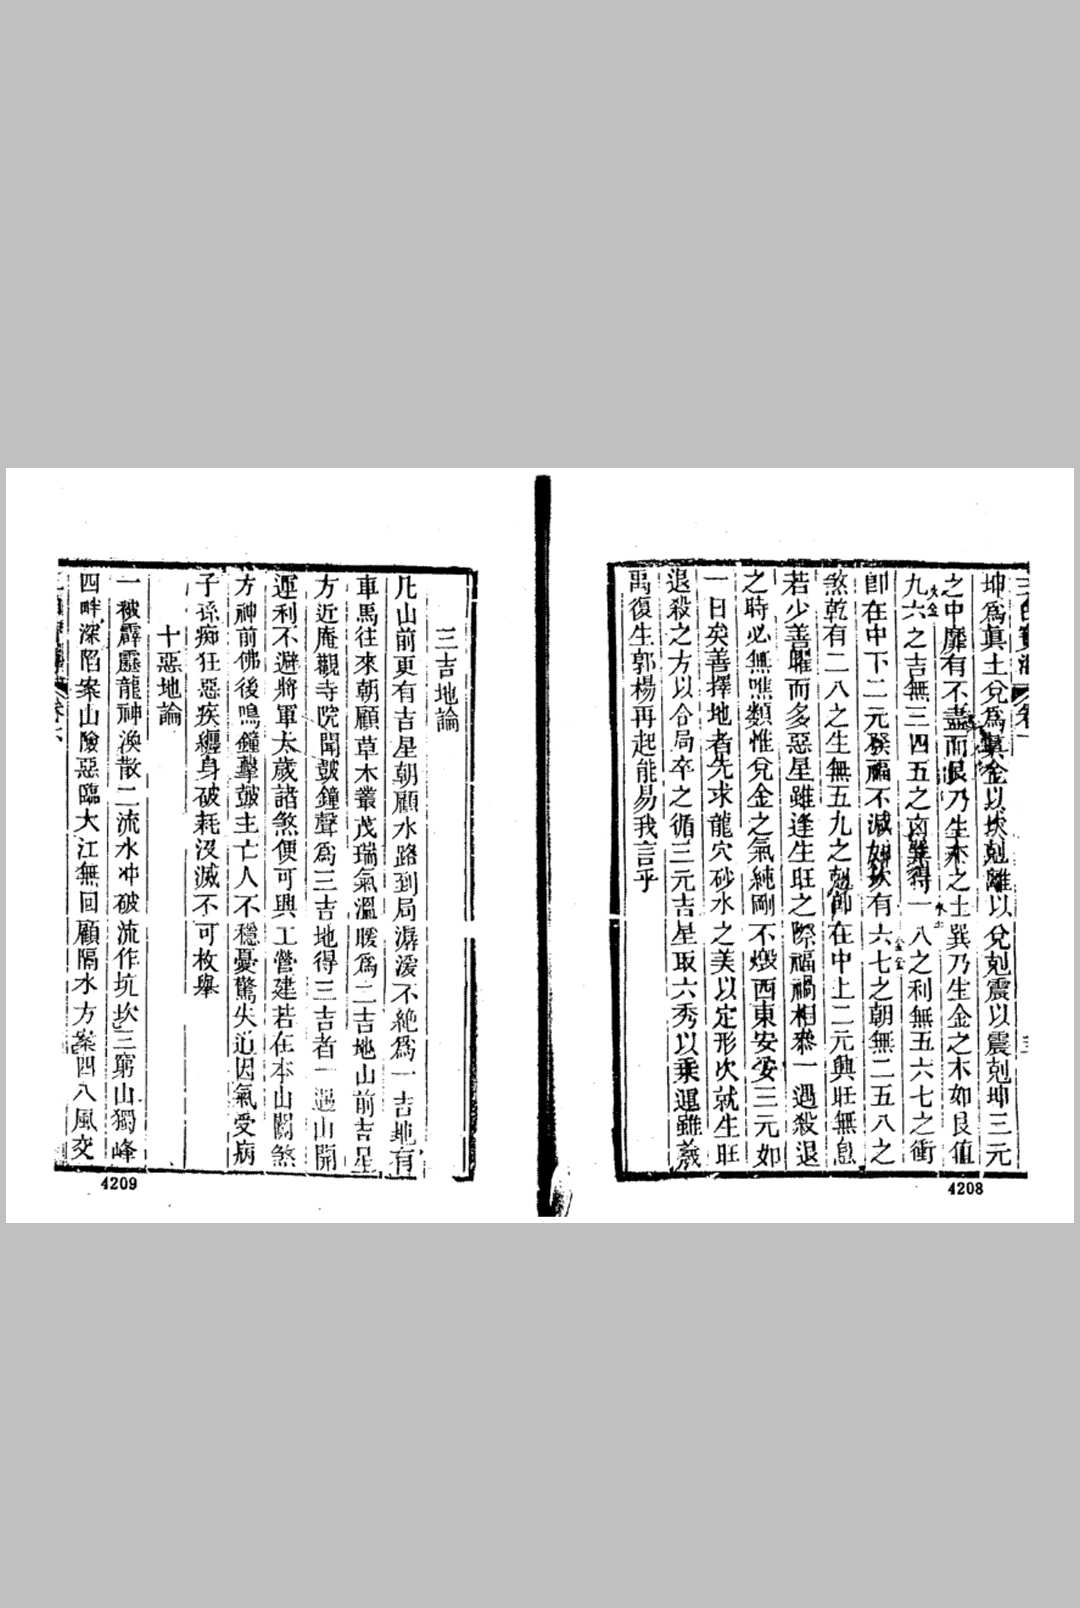 坤爲眞土兌爲眞金以坎剋離以兌剋震以震剋坤三元
之中靡有不盡而艮乃生木之土巽乃生金之木如艮值
九六之吉無三四五之凶巽得一八之利無五六七之衝
卽在中下二元發福不減如坎有六七之朝無二五八之
煞乾有二八之生無五九之剋卽在中上二元興旺無息
若少善曜而多惡星雖逢生旺之際福禍相叅一遇殺退
之時必無噍類惟兌金之氣純剛不燬西東安妥三元如
一日矣善擇地者先求龍穴砂水之美以定形次就生旺
退殺之方以合局卒之循三元吉星取六秀以乘運雖羲
禹復生郭楊再起能易我言乎
4208
三吉地論
凡山前更有吉星朝顧水路到局潺湲不絕爲一吉地有
車馬往來朝顧草木叢茂瑞氣溫暖爲二吉地山前吉星
方近庵觀寺院聞鼓鐘聲爲三吉地得三吉者一遇山開
運利不避將軍太歲諸煞便可興工營建若在本山關煞
方神前佛後鳴鐘擊鼓主亡人不穩憂驚失道因氣受病
子孫痴狂惡疾纒身破耗沒滅不可枚舉
十惡地論
一被霹靂龍神渙散二流水冲破流作坑坎三窮山獨峰
四畔深陷案山險惡臨大江無回顧隔水方案四八風交
4209